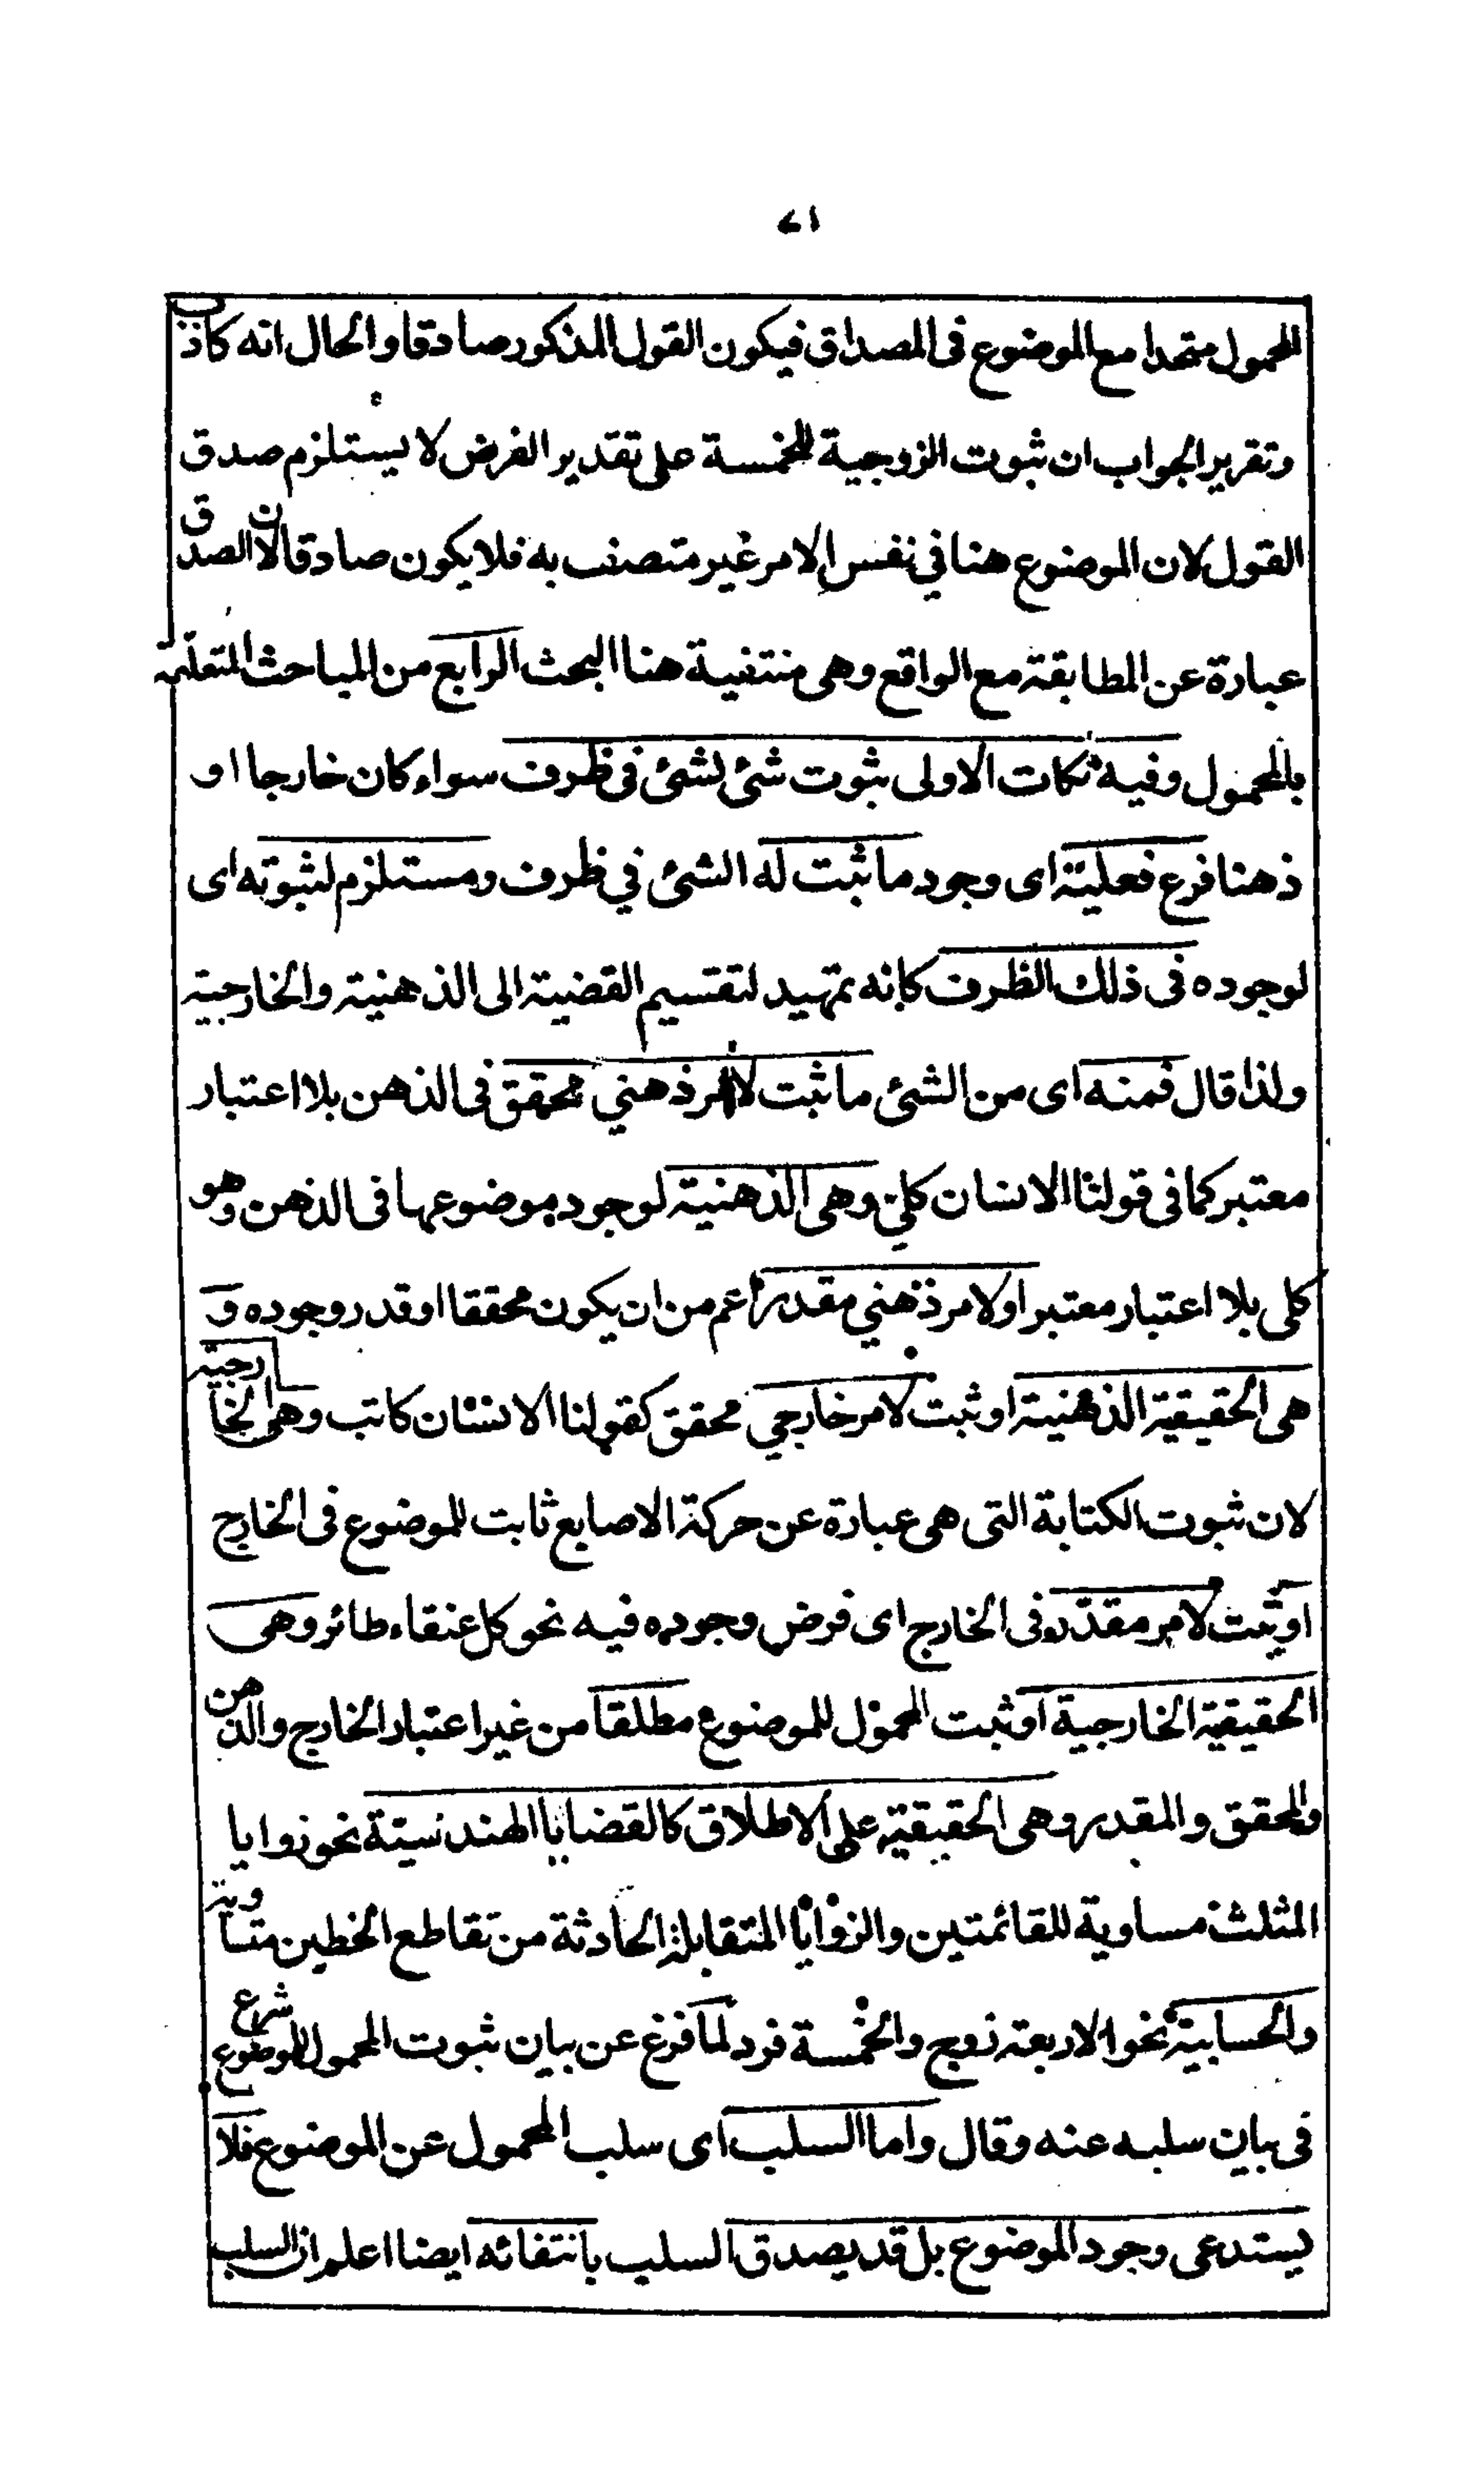 ٧١
المحمول متحدا مع الموضوع فى المصداق فيكون القول المذكور صادقا والحال انه كاذب
وتقرير الجواب ان ثبوت الزوجية للخمسة على تقدير الفرض لا يستلزم صدق
القول لان الموضوع هنا في نفس الامر غير متصف به فلا يكون صادقا لان الصدق
عبارة عن المطابقة مع الواقع وهى منتفية هنا البحث الرابع من المباحث المتعلقة
بالمحمول وفيه نكات الاولى ثبوت شئ لشئ فى ظرف سواء كان خارجا او
ذهنا فرع فعلية اى وجود ما ثبت له الشئ في ظرف ومستلزم لثبوته اى
لوجوده فى ذلك الظرف كانه تمهيد لتقسيم القضية الى الذهنية والخارجية
ولذا قال فمنه اى من الشئ ما ثبت لامر ذهني محقق فى الذهن بلا اعتبار
معتبر كما فى قولنا الانسان كلي وهى الذهنية لوجود موضوعها فى الذهن وهو
كلى بلا اعتبار معتبر او لامر ذهني مقدر اعم من ان يكون محققا او قدر وجوده و
هى الحقيقية الذهنية او ثبت لامر خارجي محقق كقولنا الانسان كاتب وهى الخارجية
لان ثبوت الكتابة التى هى عبارة عن حركة الاصابع ثابت للموضوع فى الخارج
او ثبت لامر مقدر فى الخارج اى فرض وجوده فيه نحو كل عنقاء طائر وهى
الحقيقية الخارجية او ثبت المحمول للموضوع مطلقا من غير اعتبار الخارج والذهن
والمحقق والمقدر وهى الحقيقية على الاطلاق كالقضايا الهندسية نحو زوايا
المثلث مساوية للقائمتين والزوايا المتقابلة الحادثة من تقاطع الخطين متساوية
والحسابية نحو الاربعة زوج والخمسة فرد لما فرغ عن بيان ثبوت المحمول للموضوع شرع
فى بيان سلبه عنه وقال واما السلب اى سلب المحمول عن الموضوع فلا
يستدعى وجود الموضوع بل قد يصدق السلب بانتفائه ايضا اعلم ان السلب